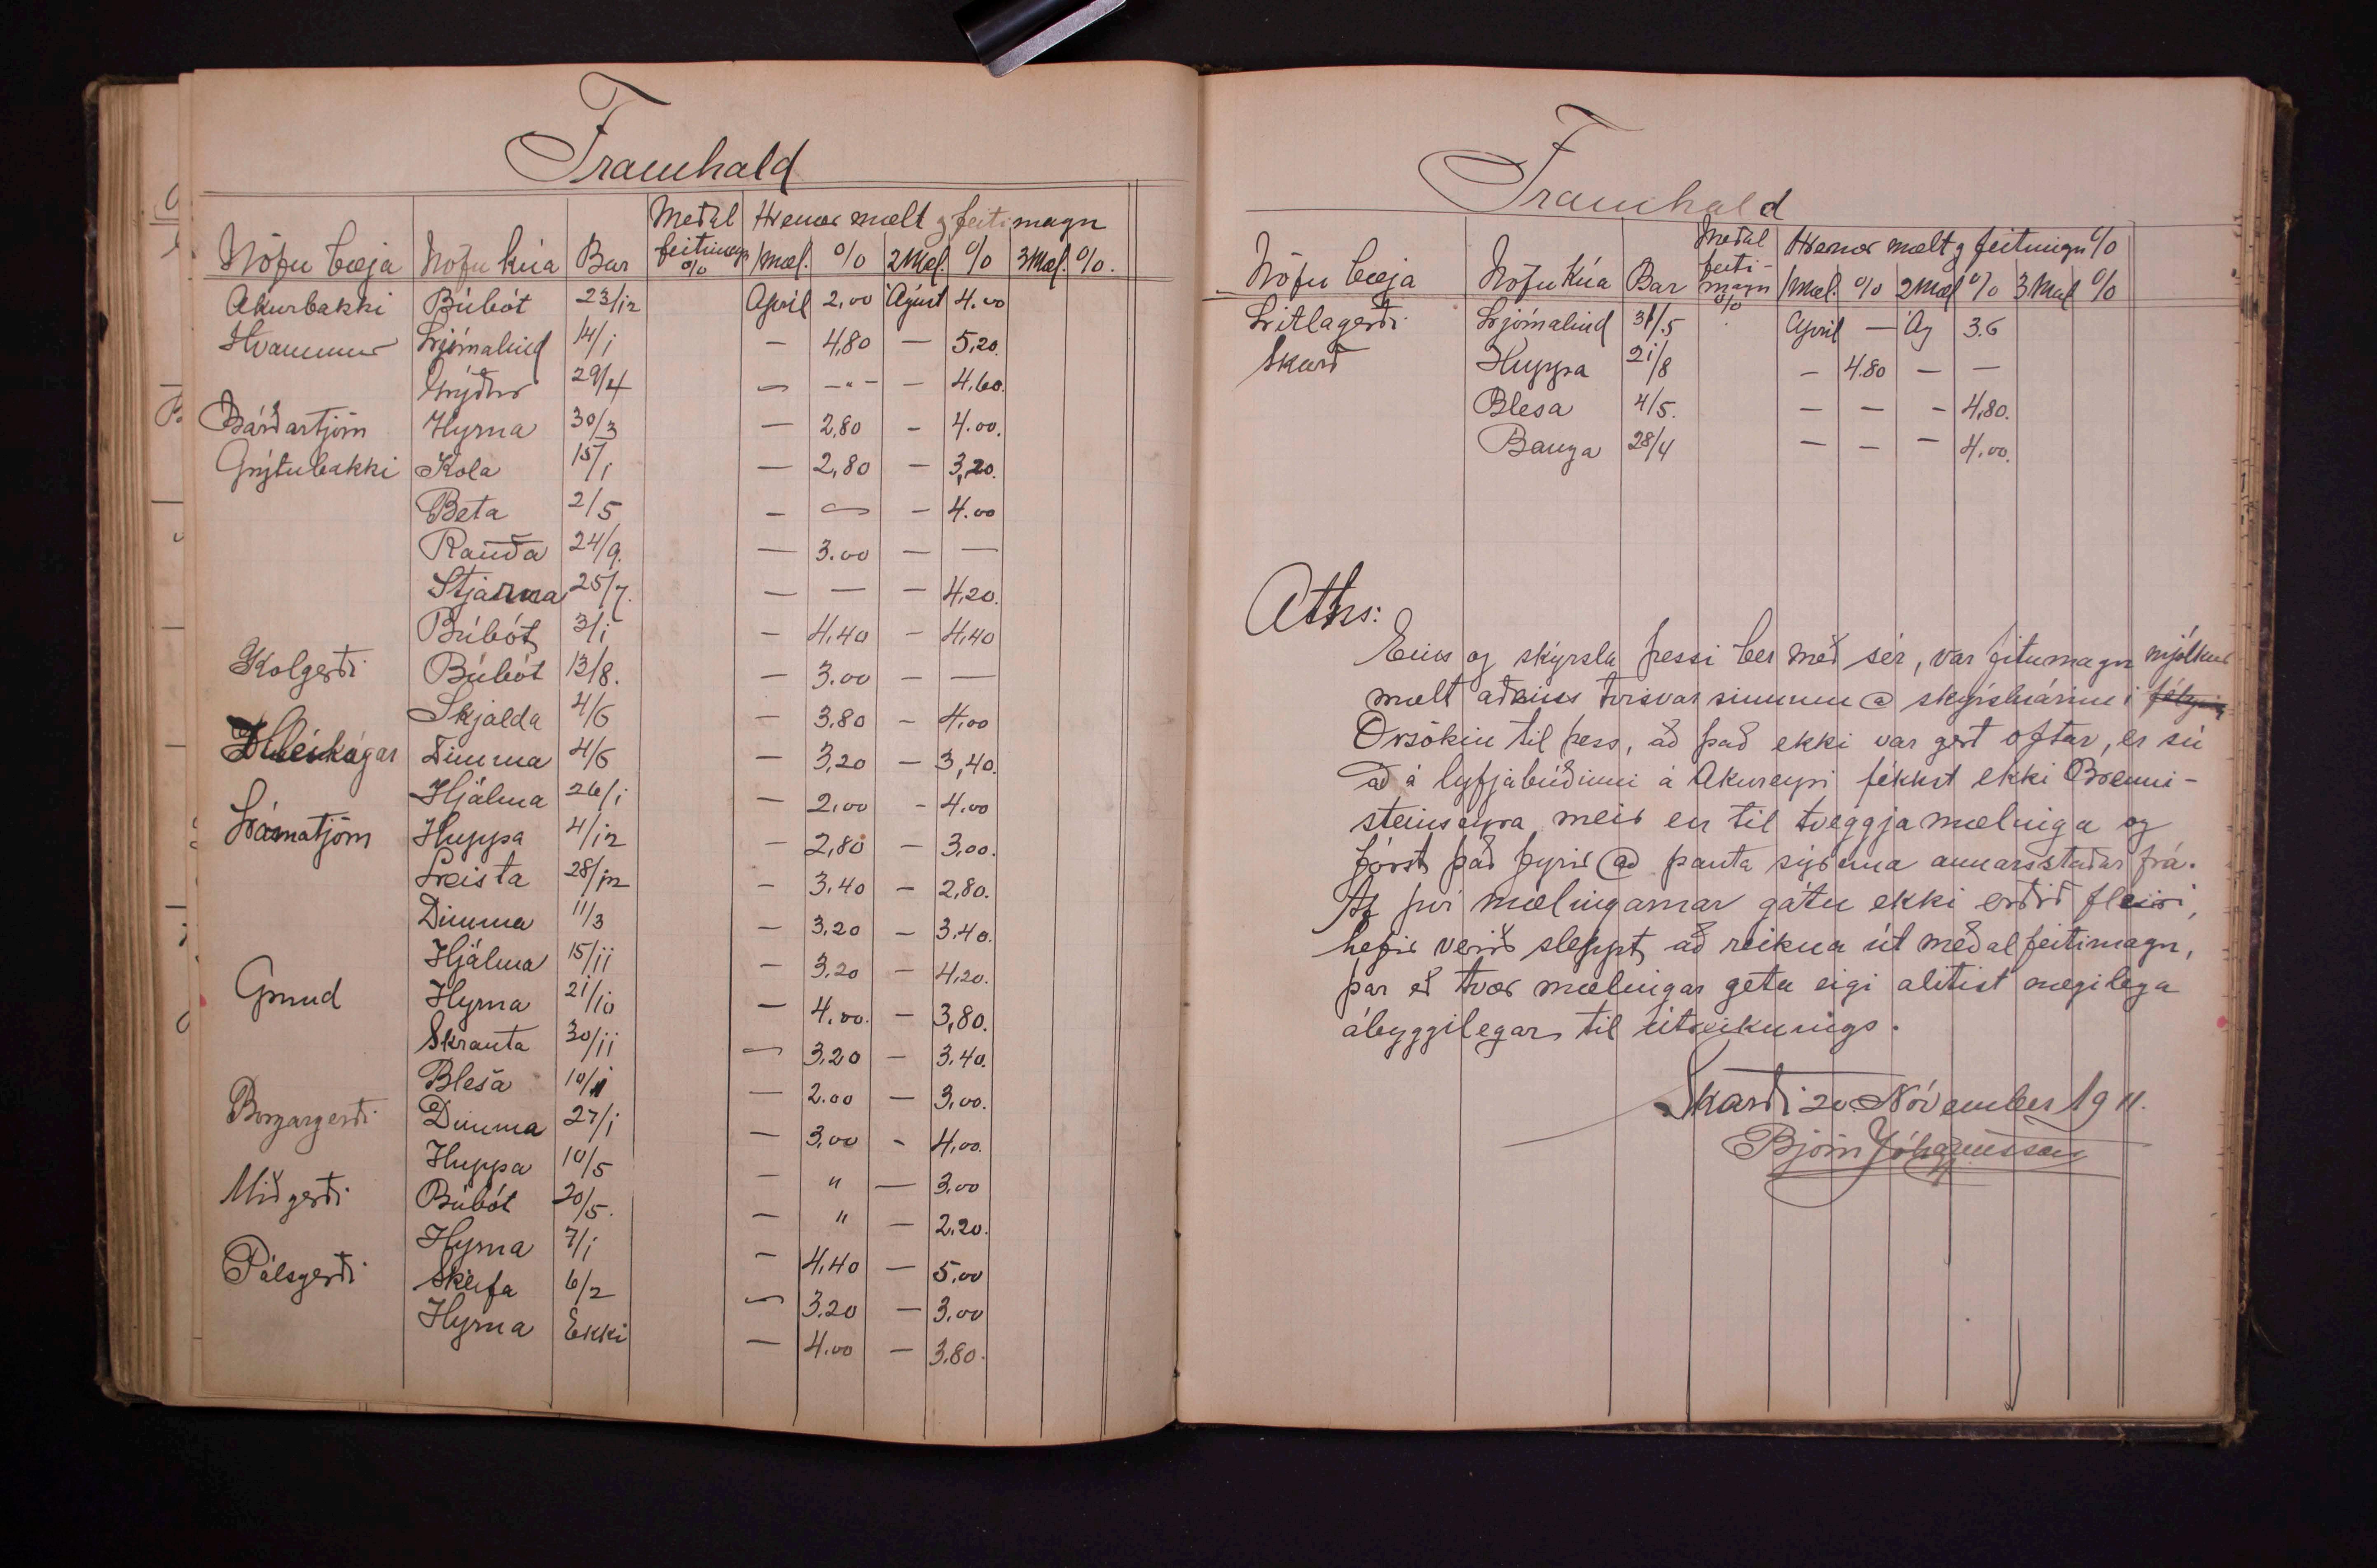 Framhald
Nöfn bæja Nöfn kúa Bar Meðal feitimagn % Hvenær mælt og feitimagn
1 mæl. % 2 Mæl. % 3 Mæl. %.
Akurbakki Búbót 23/12 Apríl 2,00 Ágúst 4.00
Hvammur Ljómalind 14/1 — 4,80 — 5,20.
29/4 — -"- — 4,60.
Bárðartjörn Hyrna 30/3 — 2,80 — 4.00.
Grýtubakki Kola 15/1 — 2,80 — 3,20.
Beta 2/5 — — — 4.00
Rauða 24/9. — 3.00 — —
Stjarna 25/7. — — — 4,20.
Búbót 3/1 — 4,40 — 4,40
Kolgerði Búbót 13/8. — 3.00 — —
Skjalda 4/6 — 3,80 — 4,00
Dimma 4/6 — 3,20 — 3,40.
Hjálma 26/1 — 2,00 — 4.00
Huppa 4/12 — 2,80 — 3,00.
28/12 — 3.40 — 2,80.
Dimma 11/3 — 3,20 — 3,40.
Hjálma 15/11 — 3,20 — 4,20.
Grund Hyrna 21/10 — 4,00. — 3,80.
Skrauta 30/11 — 3,20 — 3,40.
Blesa — 2.00 — 3,00.
Borgargerði Dimma 27/1 — 3,00 — 4,00.
Huppa 10/5 — " — 3,00
Miðgerði Búbót 20/5. — " — 2,20.
Hyrna 7/1 — 4,40 — 5,00
Pálsgerði Skeifa 6/2 — 3.20 — 3,00
Hyrna Ekki — 4.00 — 3,80.
Framhald
Nöfn bæja Nöfn kúa Bar Meðal feiti-magn % Hvenær mælt og feitimagn %
1 Mæl. % 2 Mæl % 3 Mæl %
Litlagerði Ljómalind 31/5 Apríl — Ág 3.6
Skarð Huppa 21/8 — 4.80 — —
Blesa 4/5. — — — 4,80.
Banga 28/4 — — — 4,00.
Aths:
Eins og skýrsla þessi ber með sér, var fitumagn mjólkur
mælt aðeins tvisvar sinnum á skýrsluárinu
Orsökin til þess, að það ekki var gert oftar, er sú
að á lyfjabúðinni á Akureyri fékkst ekki Brenni-
steinssýra meir en til tveggja mælinga og
fórst það fyrir að panta sýruna annarsstaðar frá.
Af því mælingarnar gátu ekki orðið fleiri,
hefir verið sleppt að reikna út meðalfeitimagn,
þar eð tvær mælingar geta eigi álitist nægilega
ábyggilegar til útreiknings.
Skarði 20. Nóvember 1911.
Björn Jóhannsson